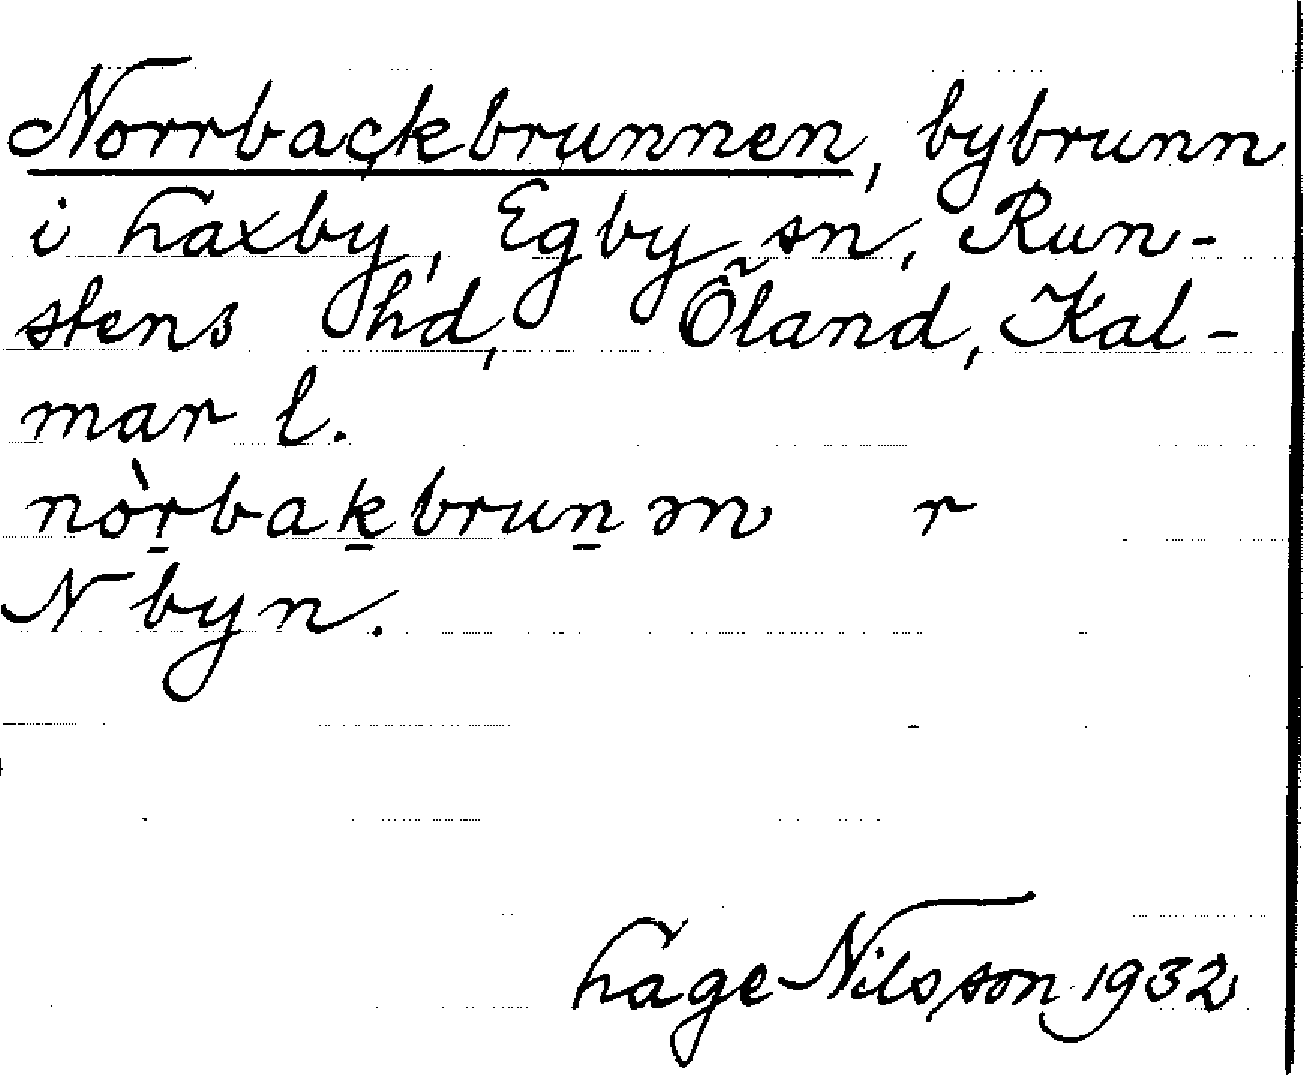 Norrbackbrunnen, bybrunn
i Laxby, Egby sn, Run-
stens hd, Öland, Kal-
mar l.
nòr̲bak̲brun̲ən r
N byn.
Lage Nilsson 1932